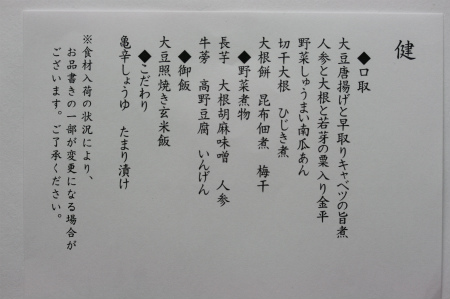 健
◆口取
大豆唐揚げと早取りキャベツの旨煮
人参と大根と若芽の粟入り金平
野菜しゅうまい南瓜あん
切干大根　ひじき煮
大根餅　昆布佃煮　梅干
◆野菜煮物
長芋　大根胡麻味噌　人参
牛蒡　高野豆腐　いんげん
◆御飯
大豆照焼き玄米飯
◆こだわり
亀辛しょうゆ　たまり漬け
※食材入荷の状況により、
お品書きの一部が変更になる場合が
ございます。ご了承ください。